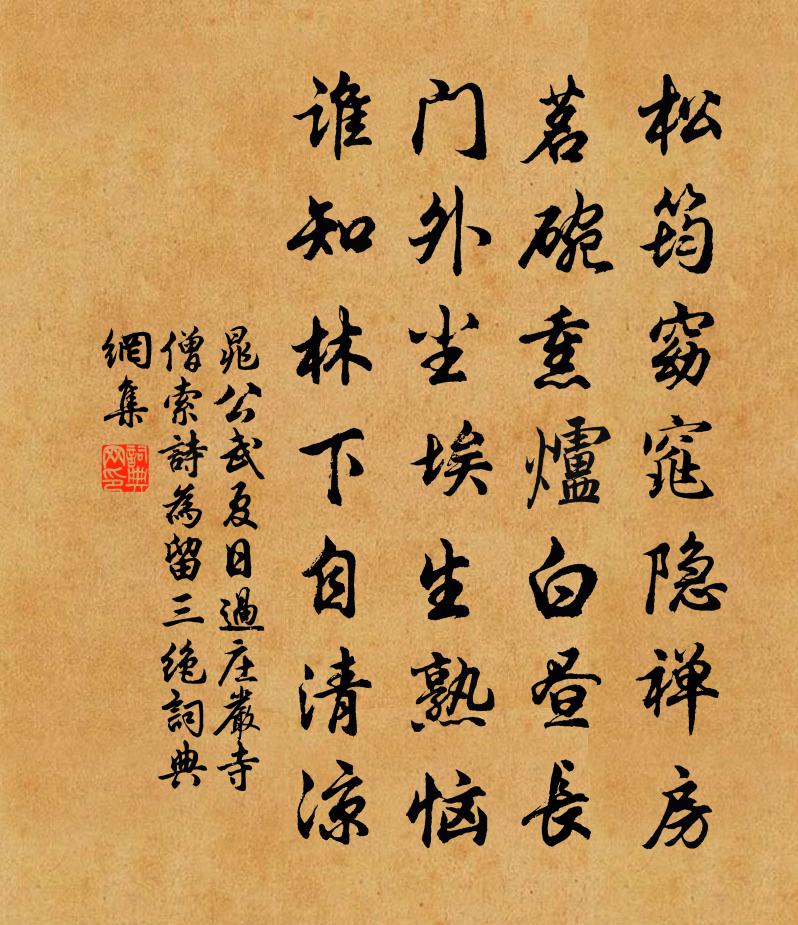 松筠窈窕隐禅房
茗碗熏爐白昼长
门外尘埃生熟恼
谁知林下自清凉
晁公武夏日過庄嚴寺
僧索詩為留三绝詞典
網集
詞典
网印